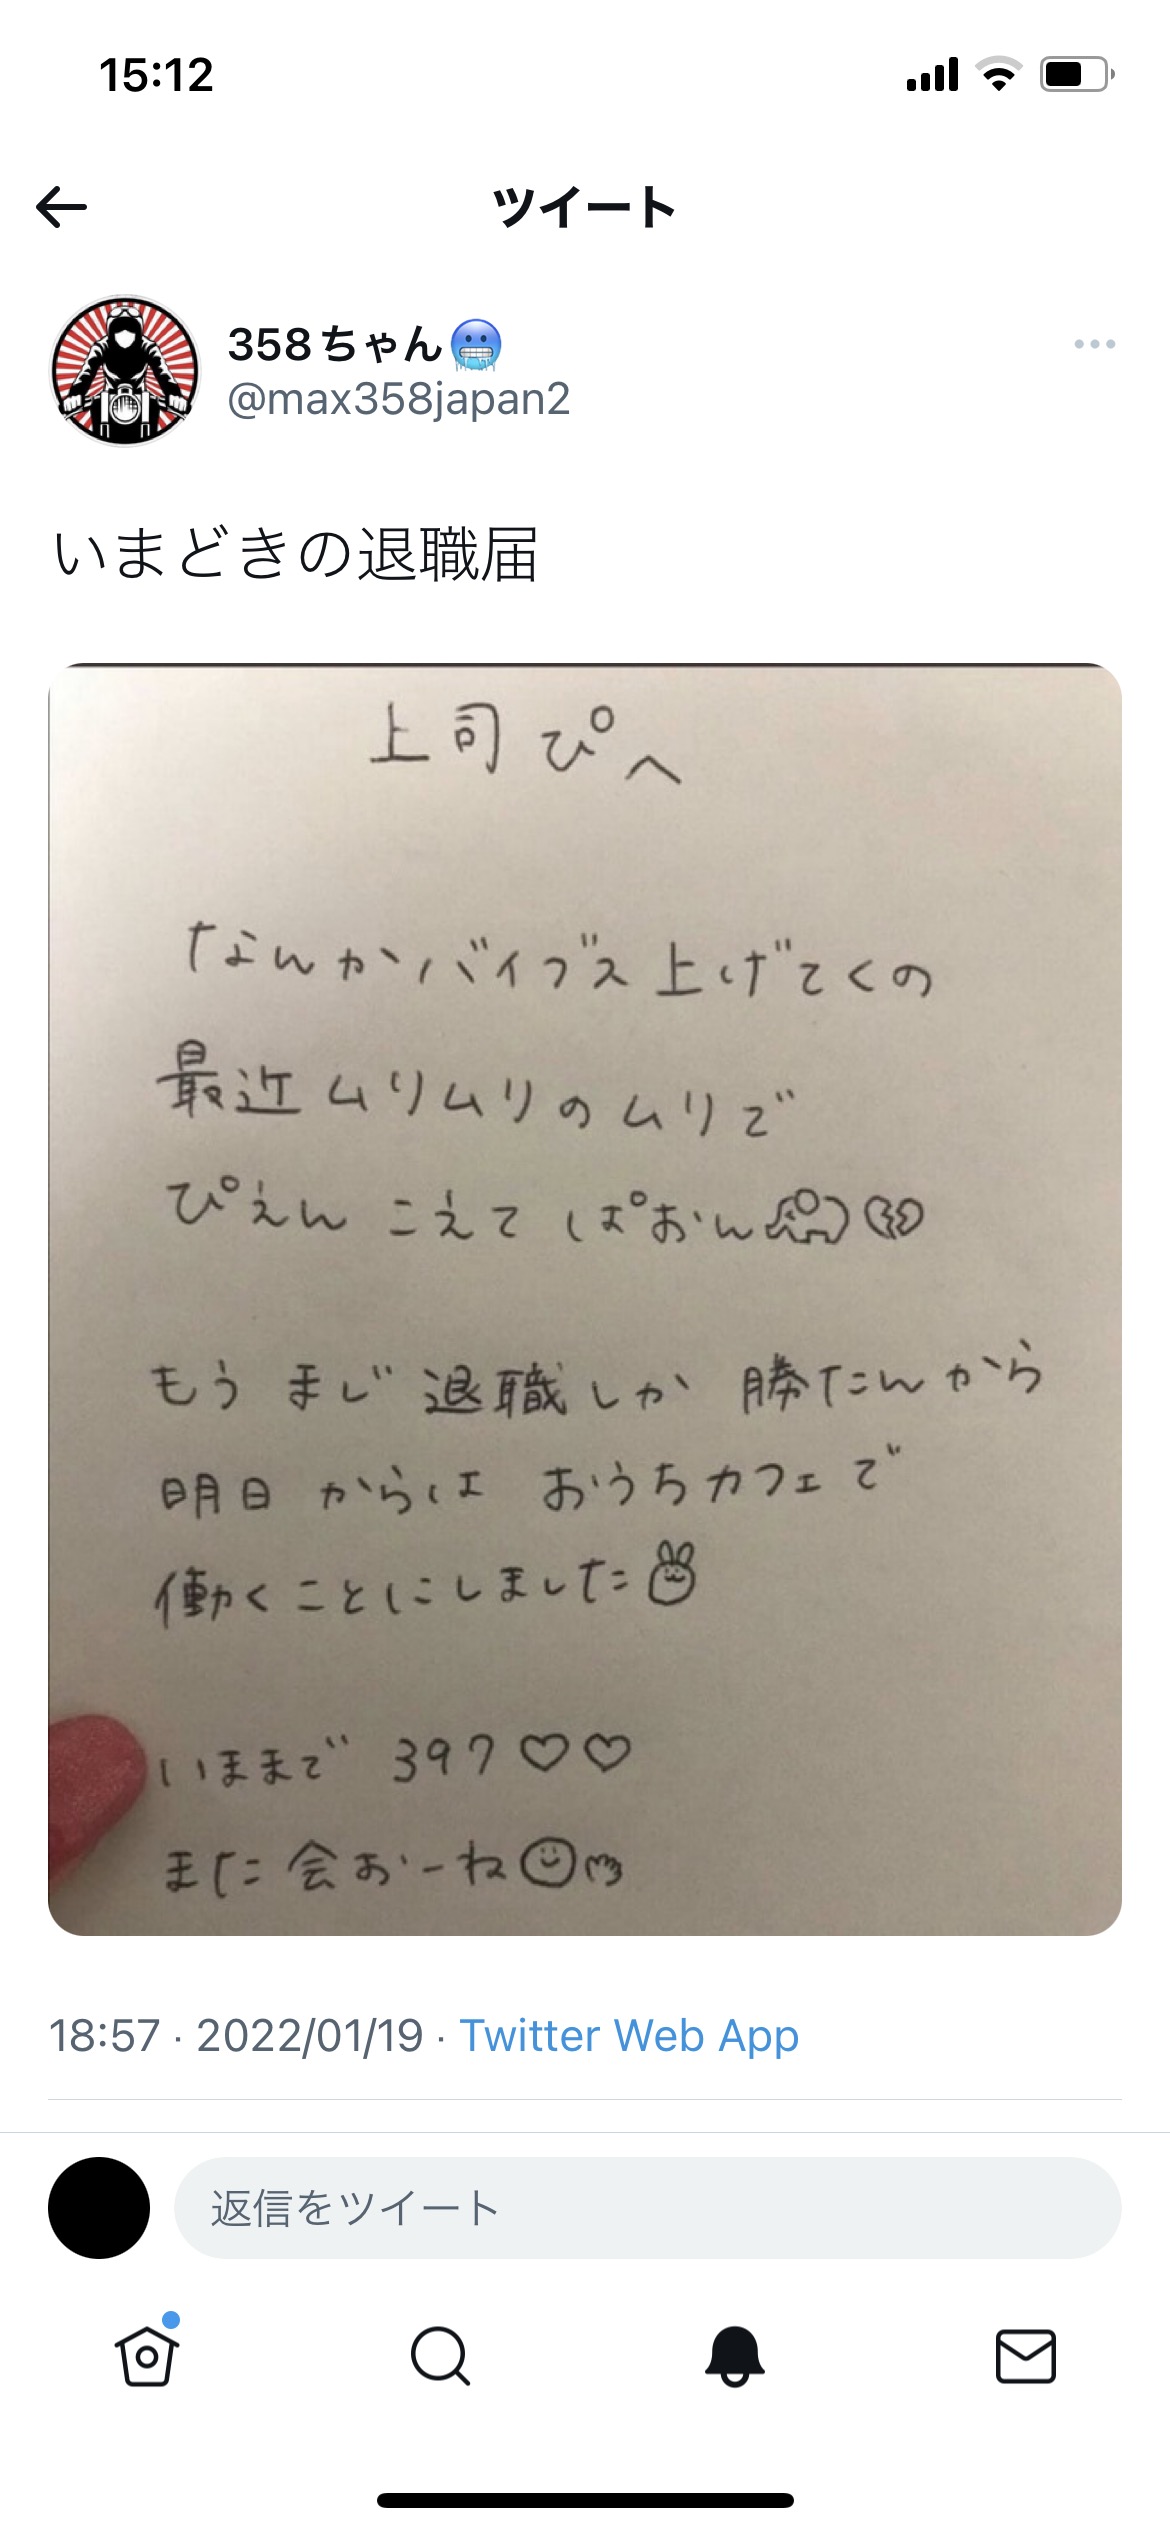 15:12
ツイート
358ちゃん🥶
@max358japan2
いまどきの退職届
上司ぴへ
なんかバイブス上げてくの
最近ムリムリのムリで
ぴえんこえてぱおん
もうまじ退職しか勝たんから
明日からはおうちカフェで
働くことにしました
いままで 397♡♡
また会おーね
18:57 · 2022/01/19 · Twitter Web App
返信をツイート